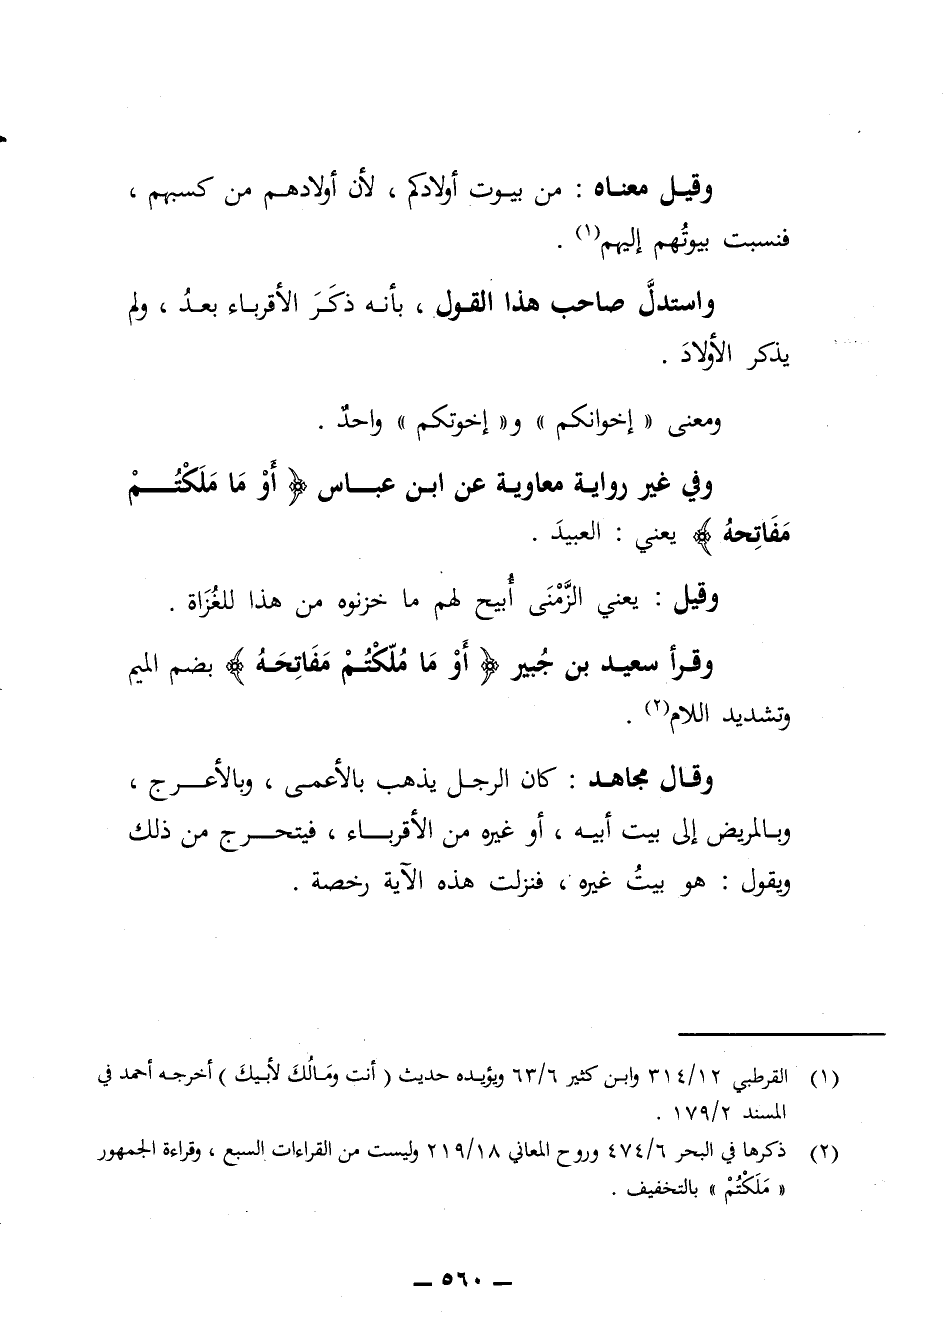 وقيل معناه : من بيوت أولادكم ، لأن أولادهم من كسبهم ،
فنسبت بيوتُهم إليهم(١) .
واستدلَّ صاحب هذا القول ، بأنه ذكَرَ الأقرباء بعدُ ، ولم
يذكر الأولادَ .
ومعنى « إخوانكم » و« إخوتكم » واحدٌ .
وفي غير رواية معاوية عن ابن عباس ﴿ أَوْ مَا مَلَكْتُمْ
مَفَاتِحهُ ﴾ يعني : العبيدَ .
وقيل : يعني الزَّمْنَى أُبيح لهم ما خزنوه من هذا للغُزَاة .
وقرأ سعيد بن جُبير ﴿ أَوْ مَا مُلّكْتُمْ مَفَاتِحَهُ ﴾ بضم الميم
وتشديد اللام(٢) .
وقال مجاهد : كان الرجل يذهب بالأعمى ، وبالأعرج ،
وبالمريض إلى بيت أبيه ، أو غيره من الأقرباء ، فيتحرج من ذلك
ويقول : هو بيتُ غيره ، فنزلت هذه الآية رخصة .
(١) القرطبي ٣١٤/١٢ وابن كثير ٦٣/٦ ويؤيده حديث ( أنت ومَالُكَ لأبيكَ ) أخرجه أحمد في
المسند ١٧٩/٢ .
(٢) ذكرها في البحر ٤٧٤/٦ وروح المعاني ٢١٩/١٨ وليست من القراءات السبع ، وقراءة الجمهور
« مَلَكْتُمْ » بالتخفيف .
— ٥٦٠ —